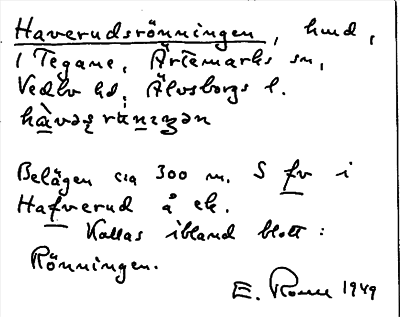 Haverudsrönningen, hmd,
i Tegane, Ärtemarks sn,
Vedbo hd, Älvsborgs l.
Belägen ca 300 m. S fv i
Hafverud å ek.
Kallas ibland blott:
Rönningen.
E. 1949